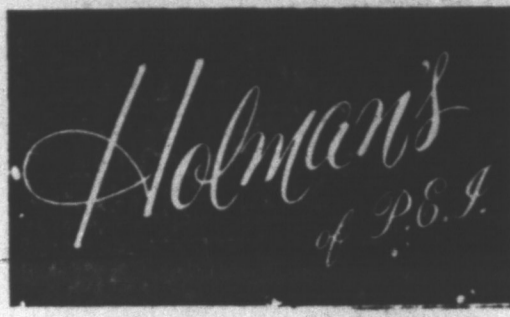 Holman's
of P.E.I.